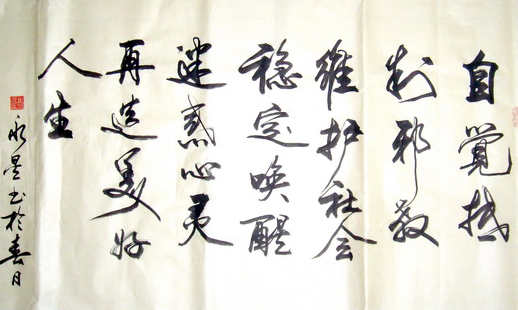 自觉抵
制邪教
维护社会
稳定唤醒
迷惑心灵
再造美好
人生
永星书于春日